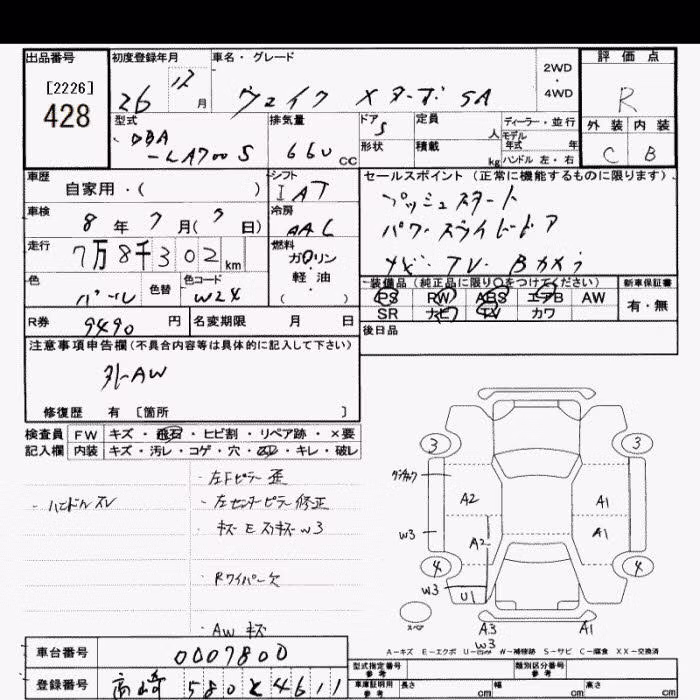 出品番号
[2226]
428
初度登録年月
26
12月
車名・グレード
ウェイク Xターボ SA
2WD
・
4WD
評価点
R
外装 内装
C B
型式
DBA
-LA700S
排気量
660 CC
ドア
5
形状
定員
人
積載
kg
ディーラー・並行
モデル
年式 年
ハンドル 左・右
車歴
自家用・( )
車検
8年7月(7日)
走行
7万8千302 km
色
パール
色替
色コード
W24
シフト
IAT
冷房
AAC
燃料
ガソリン
・
軽油
( )
セールスポイント(正常に機能するものに限ります)
プッシュスタート
パワースライドドア
ナビ・TV・Bカメラ
装備品(純正品に限り○をつけてください)
PS PW ABS エアB AW
SR ナビ TV カワ
新車保証書
有・無
R券 9490円
名変期限 月 日
後日品
注意事項申告欄(不具合内容等は具体的に記入して下さい)
外AW
修復歴 有 [箇所 ]
検査員 FW キズ・飛石・ヒビ割・リペア跡・×要
記入欄 内装 キズ・汚レ・コゲ・穴・凹・キレ・破レ
・ハンドルスレ
・左Fピラー歪
・左センターピラー修正
・キズ E スリキズ W3
・Rワイパー欠
・AW キズ
3
3
A2
A1
W3
A2
A1
4
4
W3
U1
スペア
A3
W3
A1
A-キズ E-エクボ U-凹ミ W-補修跡 S-サビ C-腐食 XX-交換済
車台番号
0007800
登録番号
高崎 580 と 4611
型式指定番号
参考
類別区分番号
参考
車庫証明用
参考
長さ cm
幅 cm
高さ cm